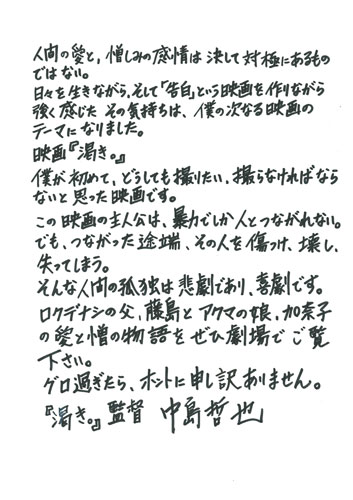 人間の愛と、憎しみの感情は決して対極にあるもの
ではない。
日々を生きながら、そして「告白」という映画を作りながら
強く感じたその気持ちは、僕の次なる映画の
テーマになりました。
映画『渇き。』
僕が初めて、どうしても撮りたい、撮らなければなら
ないと思った映画です。
この映画の主人公は、暴力でしか人とつながれない。
でも、つながった途端、その人を傷つけ、壊し、
失ってしまう。
そんな人間の孤独は悲劇であり、喜劇です。
ロクデナシの父、藤島とアクマの娘、加奈子
の愛と憎の物語をぜひ劇場でご覧
下さい。
グロ過ぎたら、ホントに申し訳ありません。
『渇き。』監督 中島哲也